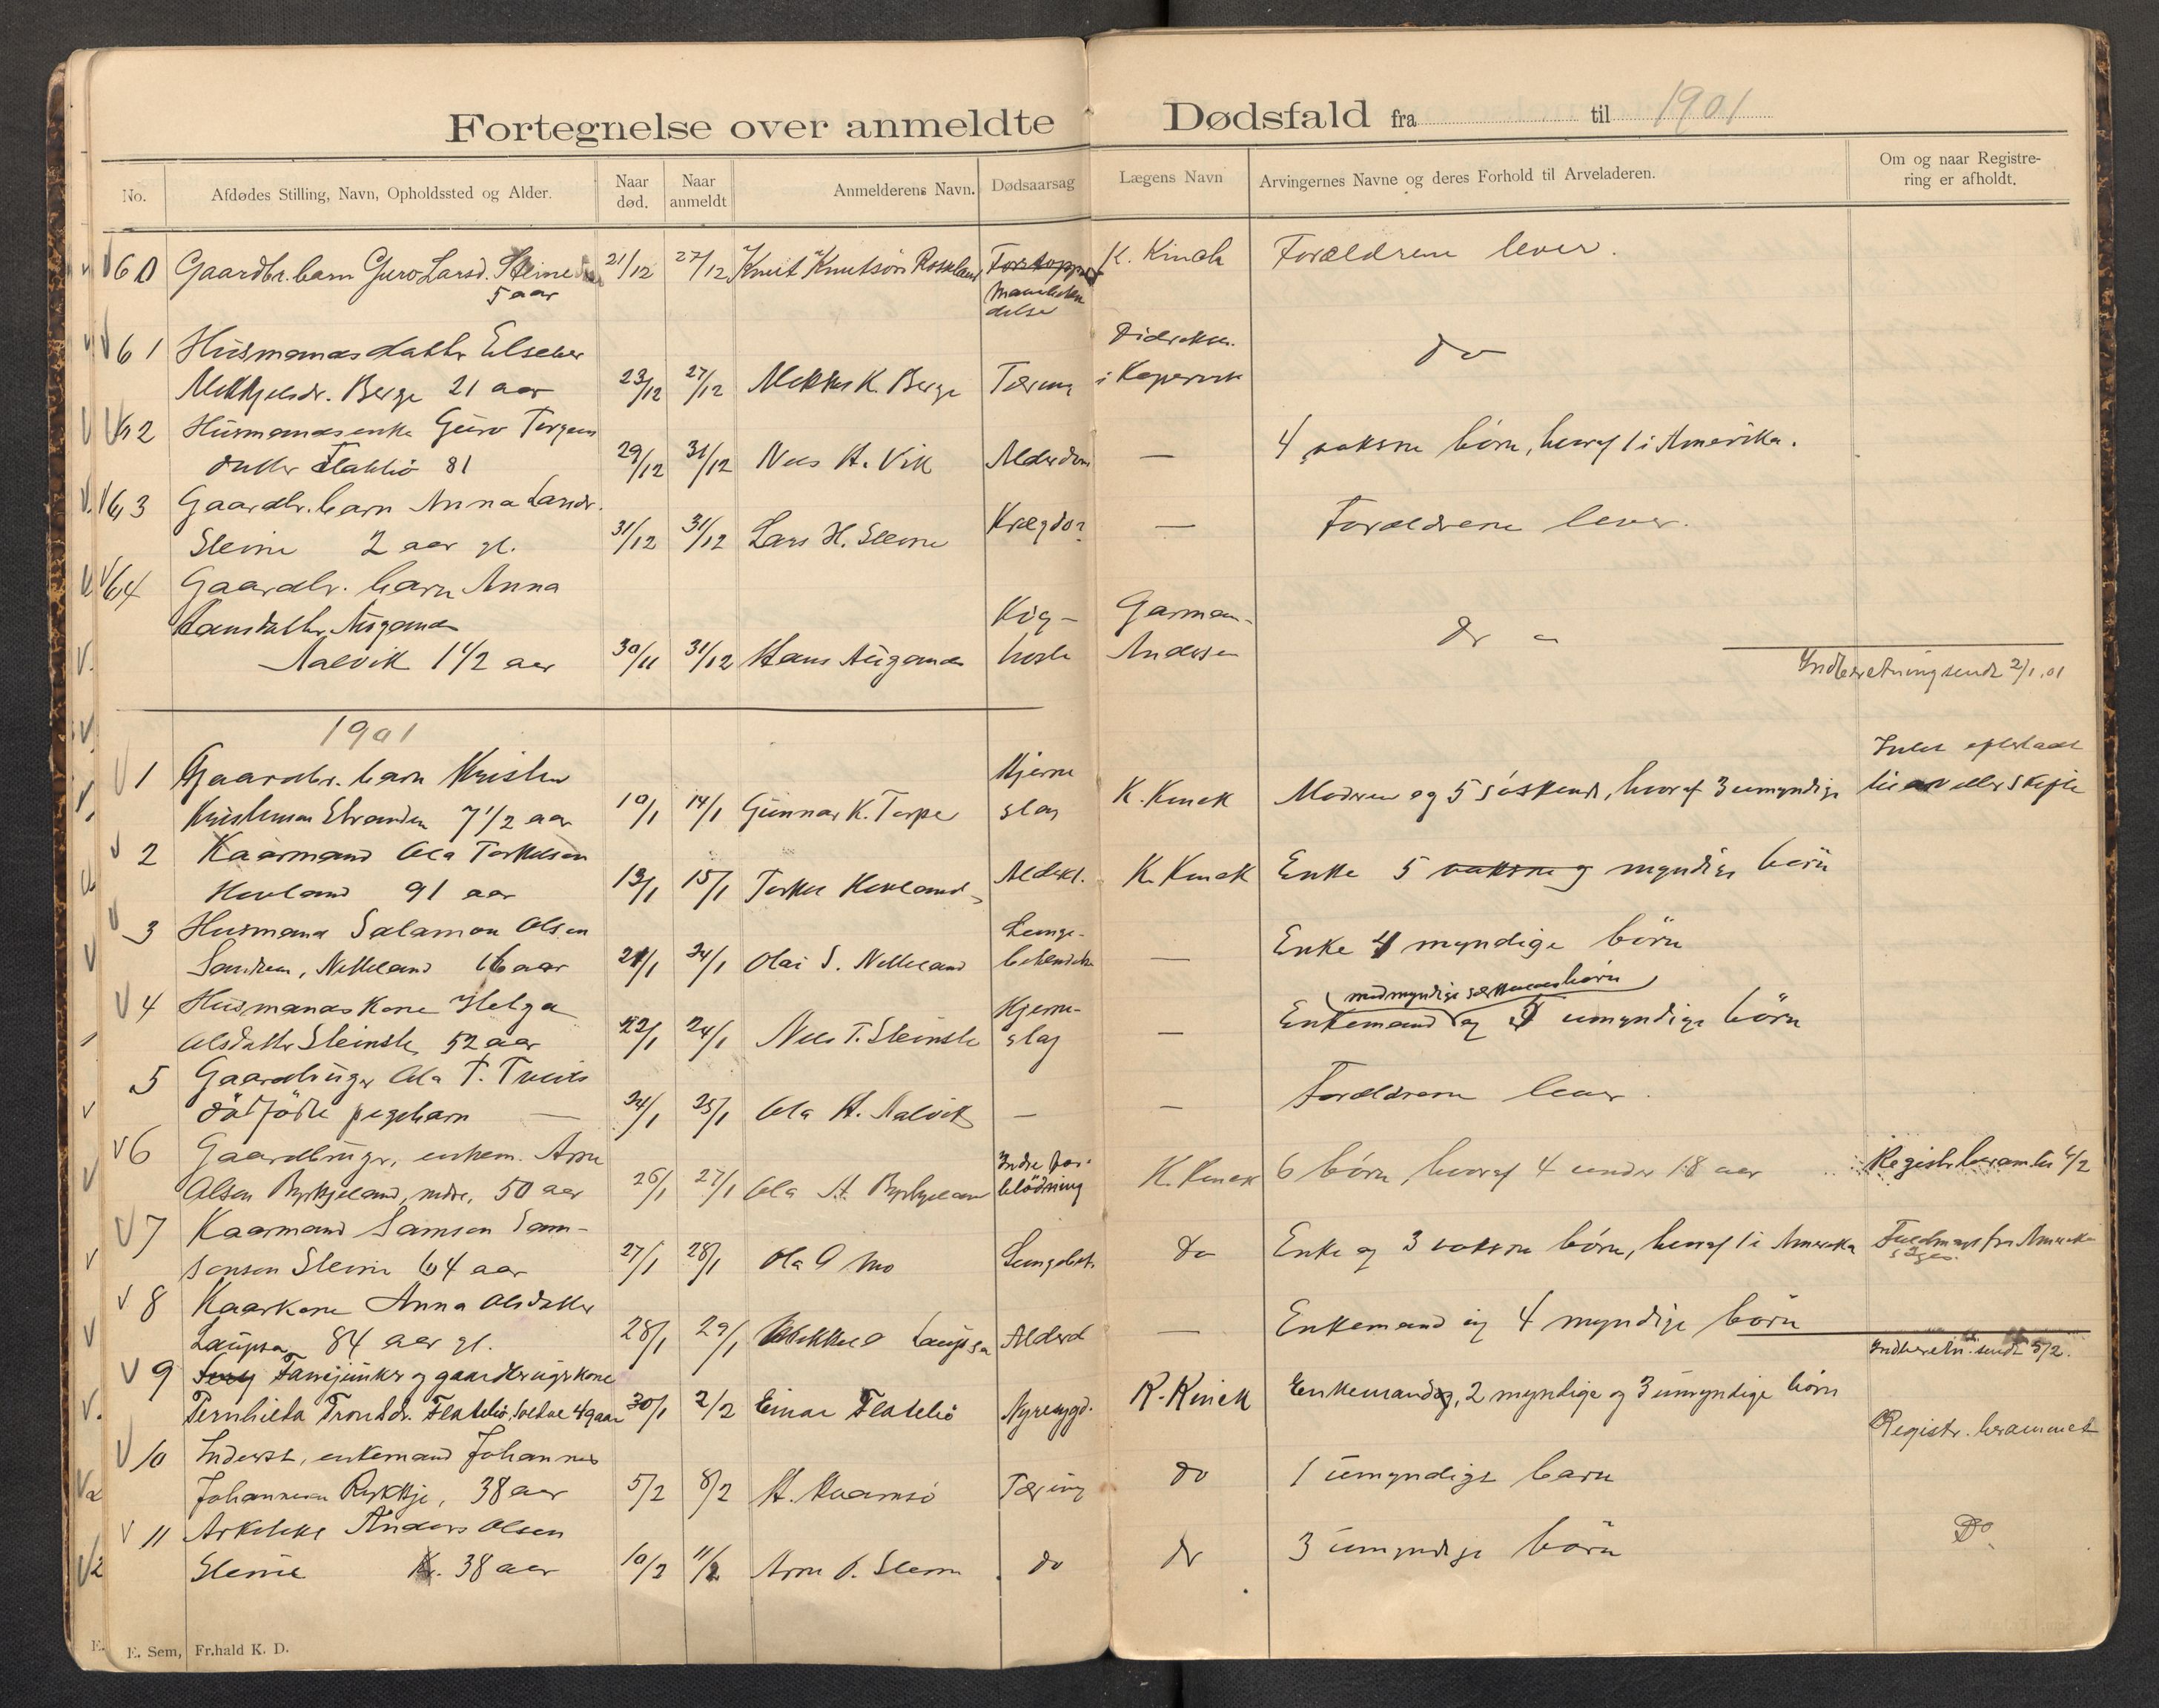 Fortegnelse over anmeldte Dødsfald fra til 1901
No.
Afdødes Stilling, Navn, Opholdssted og Alder.
Naar død.
Naar anmeldt
Anmelderens Navn.
Dødsaarsag
Lægens Navn
Arvingernes Navne og deres Forhold til Arveladeren.
Om og naar Registre-
ring er afholdt.
60 Gaardbr. barn Guro Larsd. Steine 21/12 27/12 Knut Knutsøn Rosseland K. Kinck Forældrene lever.
5 aar
61 Husmandsdatter Didriksen
Berge 21 aar 23/12 27/12 K. Berge Tæring i Kopervik do
62 Husmandsenke Guro
datter Flatebø 81 29/12 31/12 Nils H. Vik Alderdom — 4 voksne børn, hvoraf 1 i Amerika.
63 Gaardbr. barn Anna Larsdr.
Steine 2 aar gl. 31/12 31/12 Lars H. Steine — Forældrene lever.
64 Gaardbr. barn Anna
Hansdatter Augeman Kig- Garman-
Aalvik 1 1/2 aar 30/11 31/12 Hans Augeman hoste Andersen do
Indberetning sendt 2/1.01
1901
1 Gaardbr. barn Kristen Hjerne Intet efterladt
Kristensen Stranden 7 1/2 aar 10/1 14/1 Gunnar K. Torpe slag K. Kinck Moderen og 5 søskende, hvoraf 3 umyndige
2 Kaarmand Ola Torkelsen
91 aar 13/1 15/1 Torkel Alderd. K. Kinck Enke 5 voksne og myndige børn
3 Husmand Salamon Olsen Lunge-
Nelleland 66 aar 21/1 24/1 Olai S. Nelleland betendelse — Enke 4 myndige børn
4 Husmandskone Helga Hjerne-
Olsdatter Steinstø 52 aar 22/1 24/1 Nils T. Steinstø slag — Enkemand og 5 umyndige børn
5 Gaardbruger Ola T. Tveits
dødfødte pigebarn — 24/1 25/1 Ola H. Aalvik — — Forældrene lever.
6 Gaardbruger, enkem. Arne Indre for-
Olsen Byrkjeland, nedre, 50 aar 26/1 27/1 Ola A. Byrkjeland blødning K. Kinck 6 børn, hvoraf 4 under 18 aar
7 Kaarmand Samson Sam-
sonsen Steine 64 aar 27/1 28/1 Ola O Mo Lungebet. do Enke og 3 voksne børn, hvoraf 1 i Amerika Fuldmagt fra Amerika
8 Kaarkone Anna Olsdatter
Laupsa 84 aar gl. 28/1 29/1 Laupsa Alderd — Enkemand og 4 myndige børn
Indberetn. sendt 5/2.
9 Fanejunker og gaardbrugerkone
Pernhilda Trondsdr. Flatebø 49 aar 30/1 2/2 Einar Flatebø Nyresygd. K. Kinck Enkemand, 2 myndige og 3 umyndige børn
10 Inderst, enkemand Johannes Registr. berammet
Johannesen Rykkje, 38 aar 5/2 8/2 H. Kvamsø Tæring do 1 umyndigt barn
11 Anders Olsen
Steine 38 aar 10/2 11/2 Arne O. Steine do do 3 umyndige børn Do
E. Sem, Fr.hald K. D.